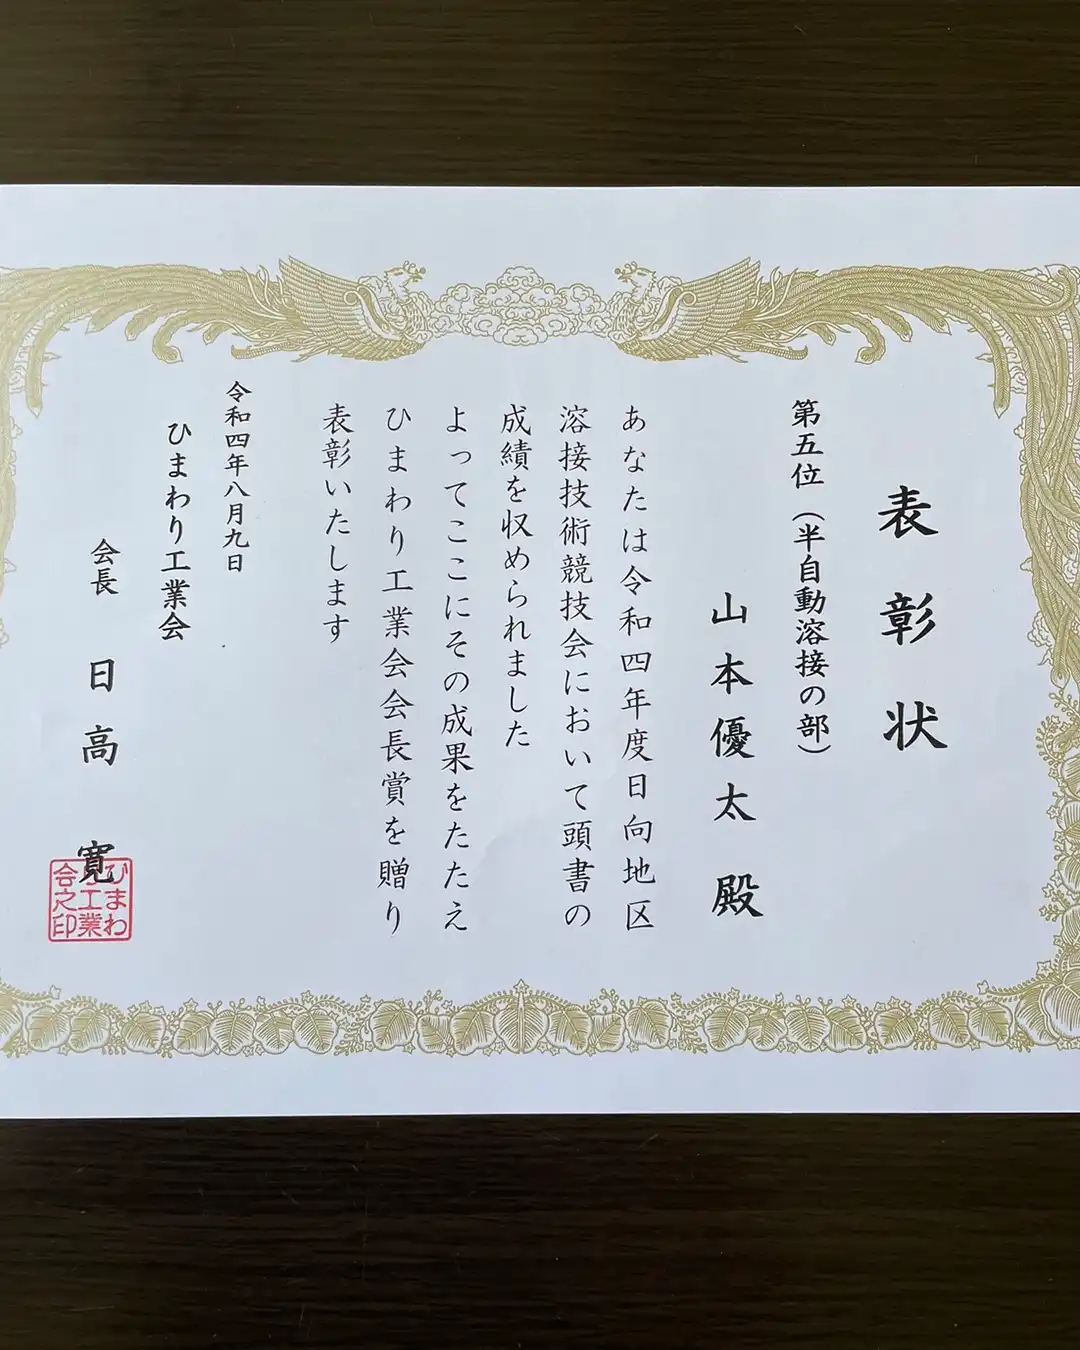 表彰状
第五位（半自動溶接の部）
山本優太 殿
あなたは令和四年度日向地区
溶接技術競技会において頭書の
成績を収められました
よってここにその成果をたたえ
ひまわり工業会会長賞を贈り
表彰いたします
令和四年八月九日
ひまわり工業会
会長 日高 寛
ひまわ
り工業
会之印